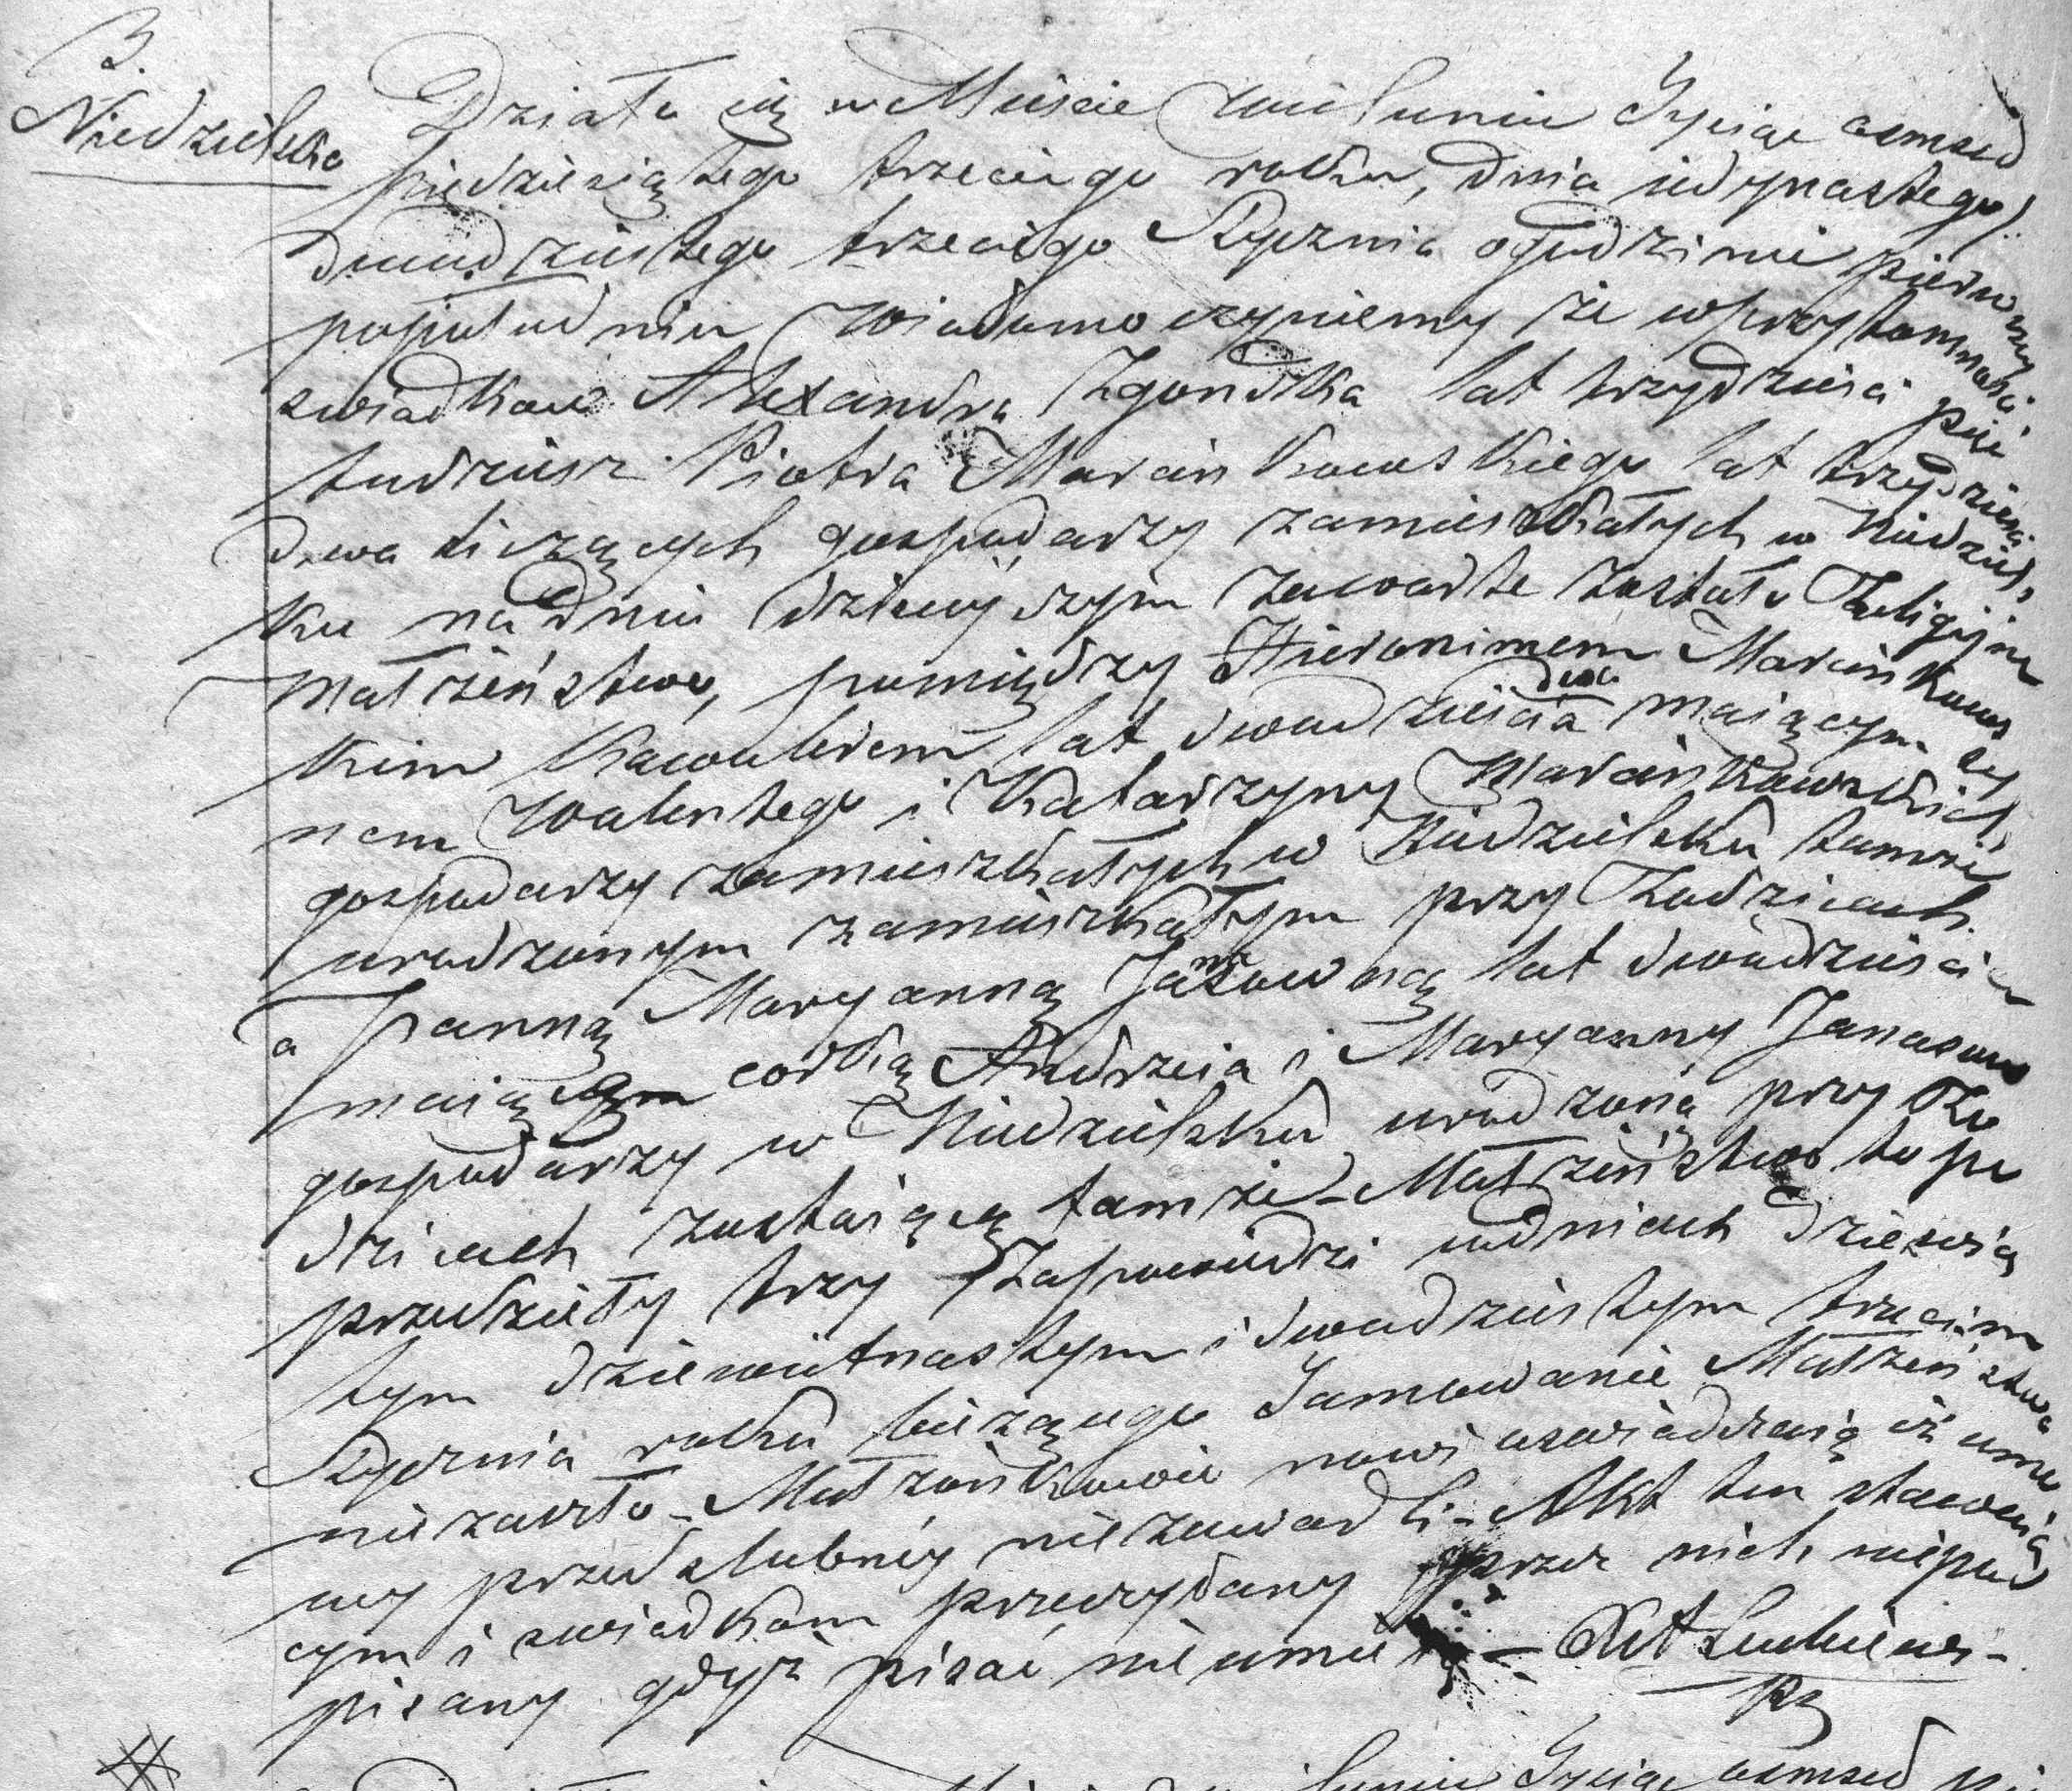 3.
Niedzielsko
Działo się w Mieście Wieluniu Tysiąc osmset
piędziesiątego trzeciego roku, dnia jedynastego/
dwudziestego trzeciego Stycznia o godzinie pierwszy
popołudniu Wiadomo czyniemy że w przytomności
swiadków Alexandra Zgondka lat trzydzieści pięć
tudziesz Piotra Marcinkowskiego lat trzydzieści
dwa liczących gospodarzy zamieszkałych w Niedziels
ku na dniu dzisiejszym zawarte zostało Religijne
małżeństwo, pomiędzy Hieronimem Marcinkows
kim Kawalerem lat dwadzieścia dwa maiącym sy
nem Walentego i Katarzyny Marcinkowskich
gospodarzy zamieszkałych w Niedzielsku tamże
urodzonym zamieszkałym przy Rodzicach
a Panną Maryanną Janasowną lat dwadzieścia
maiącą córką Andrzeia i Maryanny Janasow
gospodarzy w Niedzielsku urodzoną przy Ro
dzicach zostaiącą tamże – Małżeństwo to po
przedziły trzy Zapowiedzi w dniach dziewią
tym dziewietnastym i dwudziestym trzecim
Stycznia roku bieżącego Tamowanie Małżeństwa
nie zaszło – Małżonkowie nowi oswiadczaią iż umo
wy przedslubnéy nie zawarli – Akt ten stawaią
cym i swiadkom przeczytany przez nich niepod
pisany gdyż pisać nie umie –
Tysiąc osmset